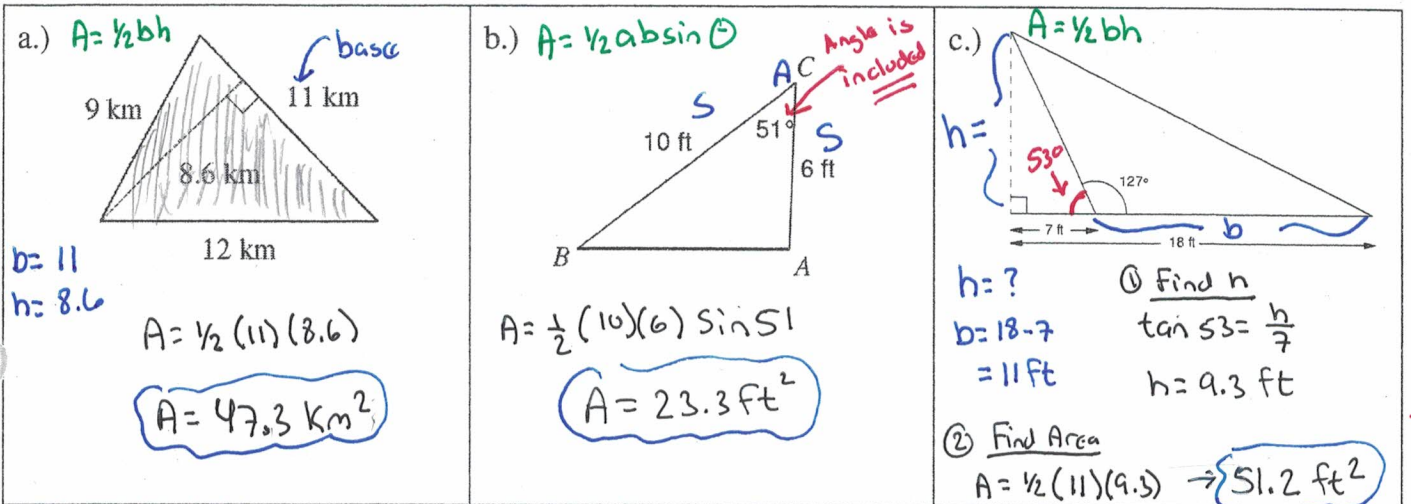 a.) A= ½bh
base
9 km
11 km
8.6 km
12 km
b= 11
h= 8.6
A= ½ (11)(8.6)
A= 47.3 Km²
b.) A= ½absin θ
Angle is
included
A C
S
51°
10 ft
S
6 ft
B
A
A= ½ (10)(6) Sin51
A= 23.3 ft²
c.) A= ½bh
h=
53°
127°
7 ft
b
18 ft
h= ?
b= 18-7
= 11ft
① Find h
tan 53= h/7
h= 9.3 ft
② Find Area
A= ½(11)(9.3) → 51.2 ft²